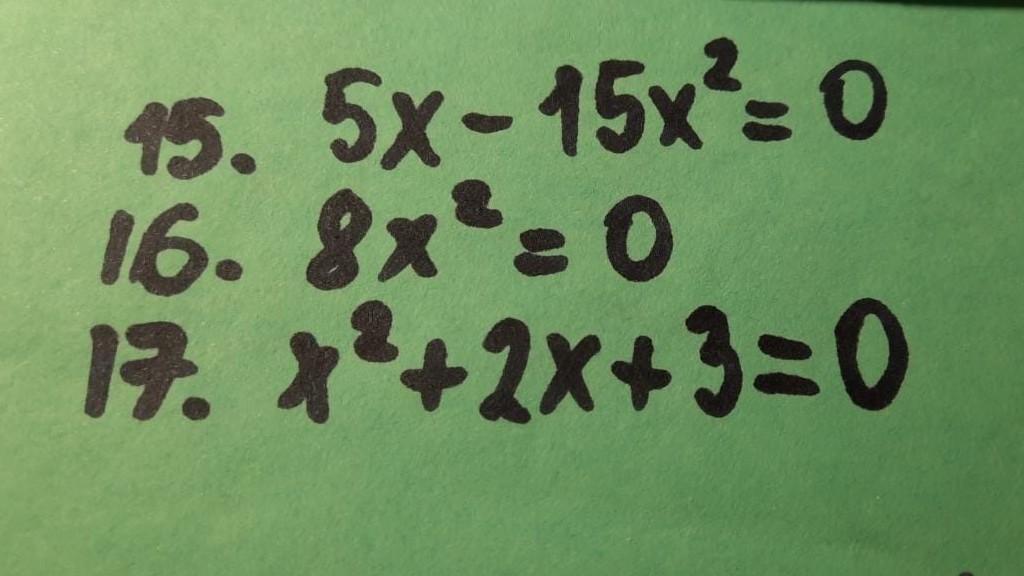 15. 5x - 15x² = 0
16. 8x² = 0
17. x² + 2x + 3 = 0